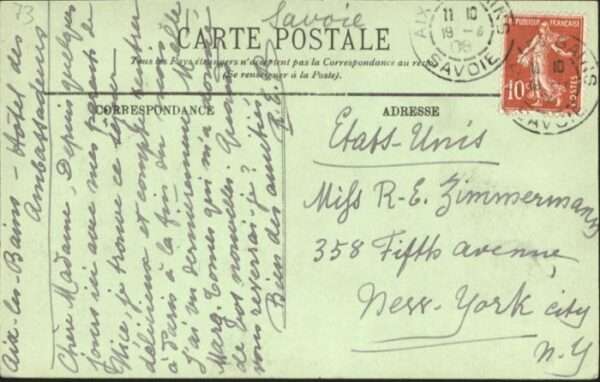 73
Savoie
CARTE POSTALE
Tous les Pays étrangers n'acceptent pas la Correspondance au recto
(Se renseigner à la Poste).
CORRESPONDANCE
ADRESSE
AIX BAINS
11 10
19 - 6
08
SAVOIE
REPUBLIQUE FRANÇAISE
10c
POSTES
BAINS
10
SAVOIE
Aix-les-Bains - Hôtel des
Ambassadeurs
Chère Madame, Depuis quelques
jours ici avec mes parents de
Nice, je trouve ce séjour
délicieux et compte rentrer
à Paris à la fin du mois
J'ai vu dernièrement Melle
Marg. Tomes qui m'a donné
de vos nouvelles. Quand
vous reverrai-je?
Bien des amitiés
R. E.
Etats-Unis
Miss R-E. Zimmermann
358 Fifth avenue,
New-York city
N-Y